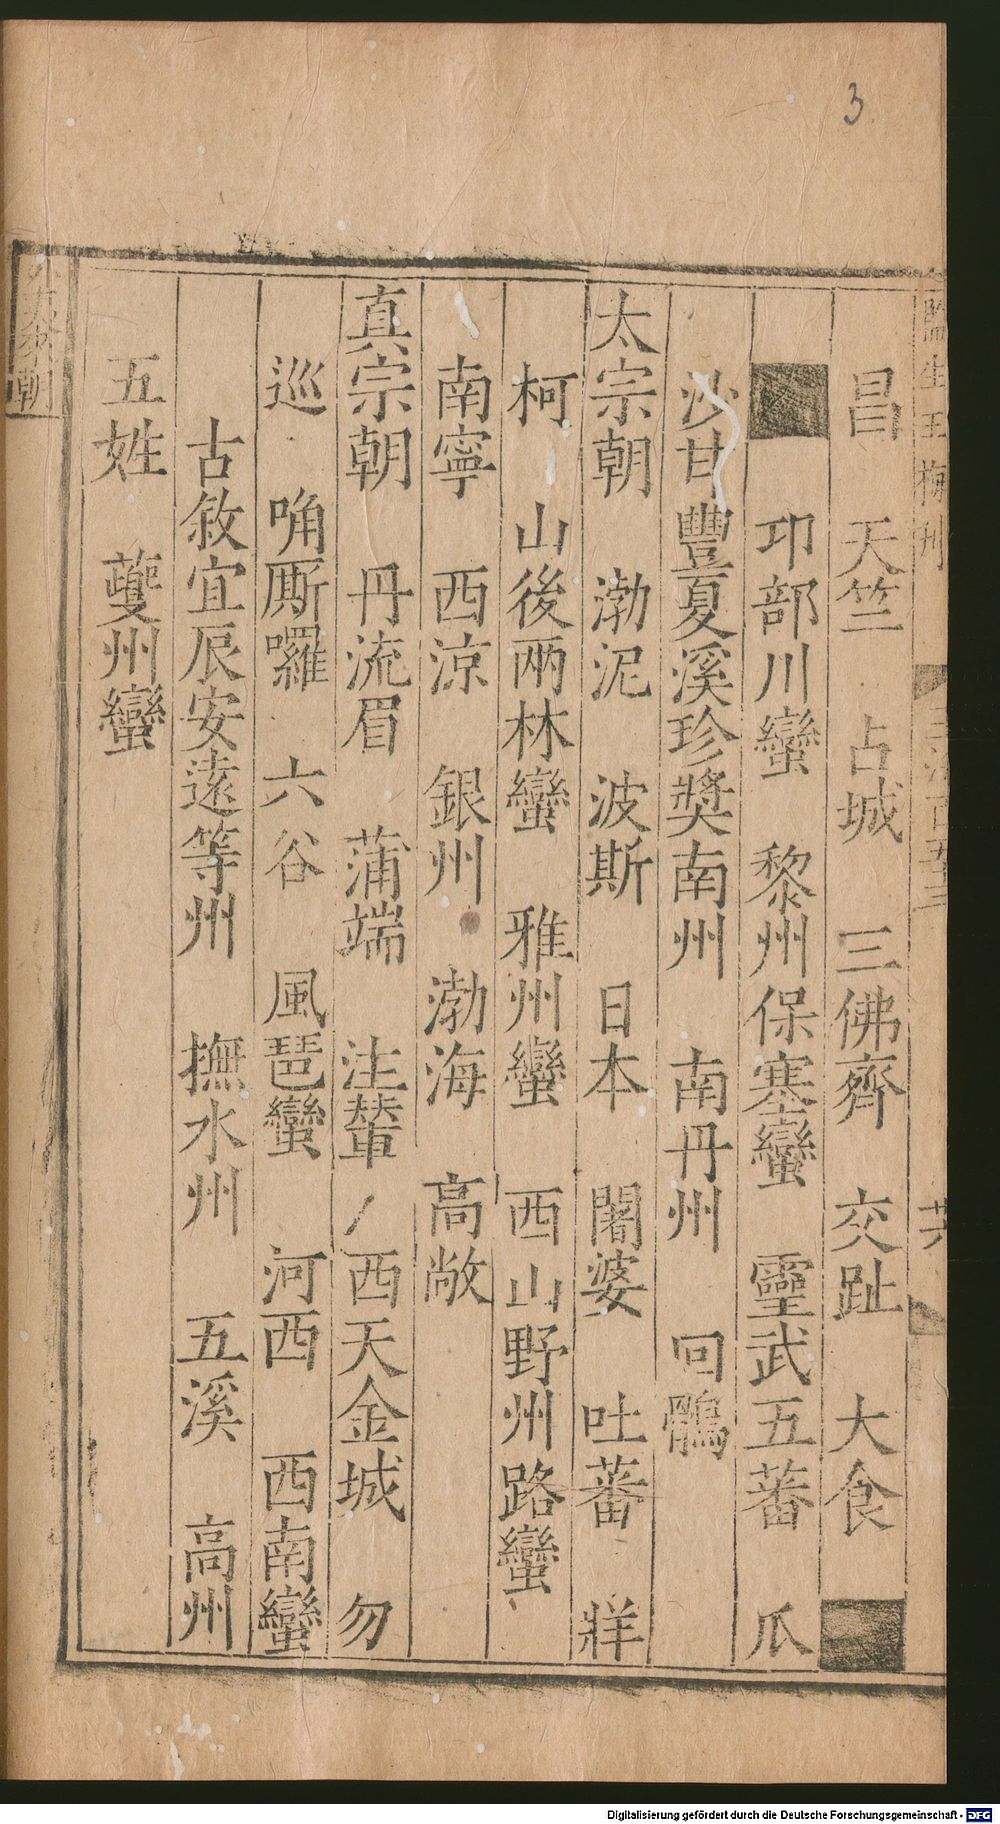 3
監生王梅州
玉海百五三 廿六
昌 天竺 占城 三佛齊 交趾 大食
卭部川蠻 黎州保塞蠻 靈武五蕃 瓜
沙甘豐夏溪珍奬南州 南丹州 回鶻
太宗朝 渤泥 波斯 日本 闍婆 吐蕃 牂
柯 山後兩林蠻 雅州蠻 西山野州路蠻
南寧 西涼 銀州 渤海 高敞
真宗朝 丹流眉 蒲端 注輦 西天金城 勿
巡 唃厮囉 六谷 風琶蠻 河西 西南蠻
古敘宜辰安遠等州 撫水州 五溪 高州
五姓 夔州蠻
外夷來朝
Digitalisierung gefördert durch die Deutsche Forschungsgemeinschaft - DFG